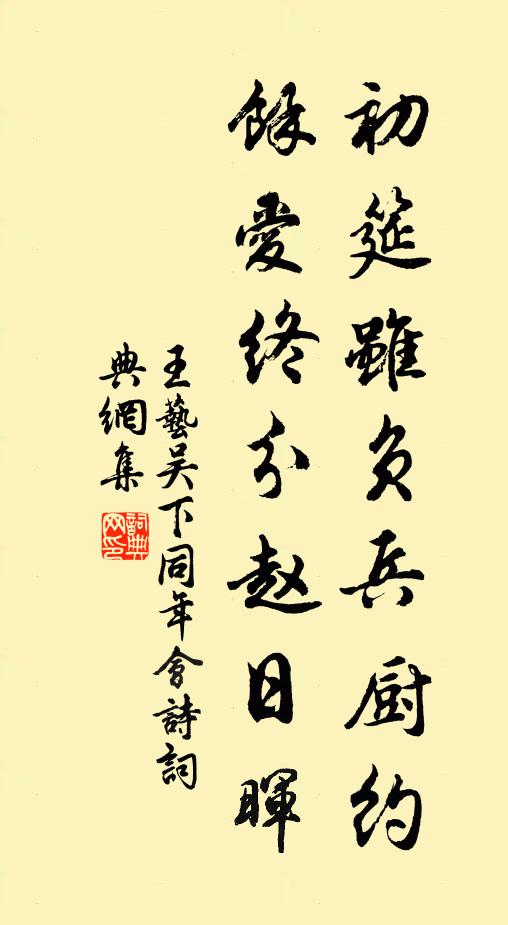 初筵雖負兵厨約
餘愛終分趙日暉
王藝吳下同年會詩詞
典網集
詞典網印